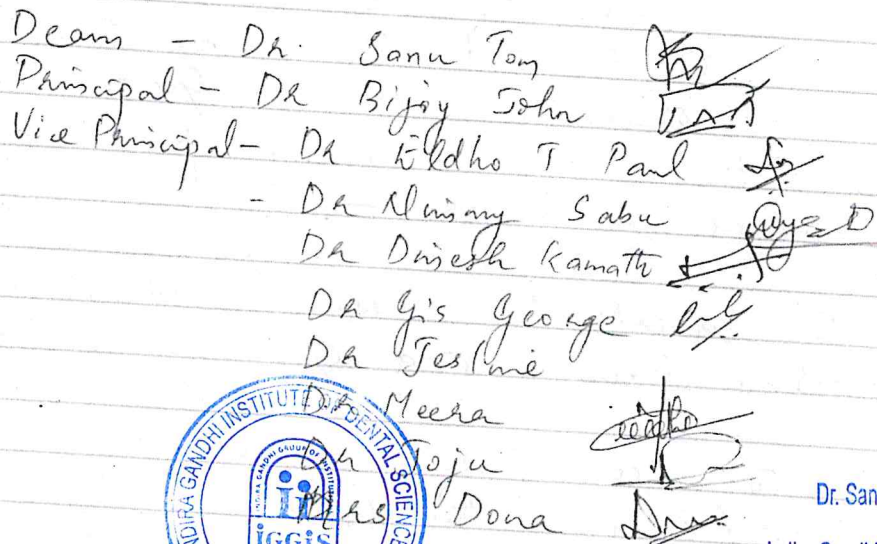 Dean - Dr. Sanu Tom
Principal - Dr Bijoy John
Vice Principal - Dr Eldho T Paul
- Dr Nimmy Sabu
Dr Dinesh Kamath
Dr Gis George
Dr Jeslmie
Dr Meera
Dr Joju
Mrs Dona
INDIRA GANDHI INSTITUTE OF DENTAL SCIENCE
INDIRA GANDHI GROUP OF INSTITU
IGGIS
Dr. San